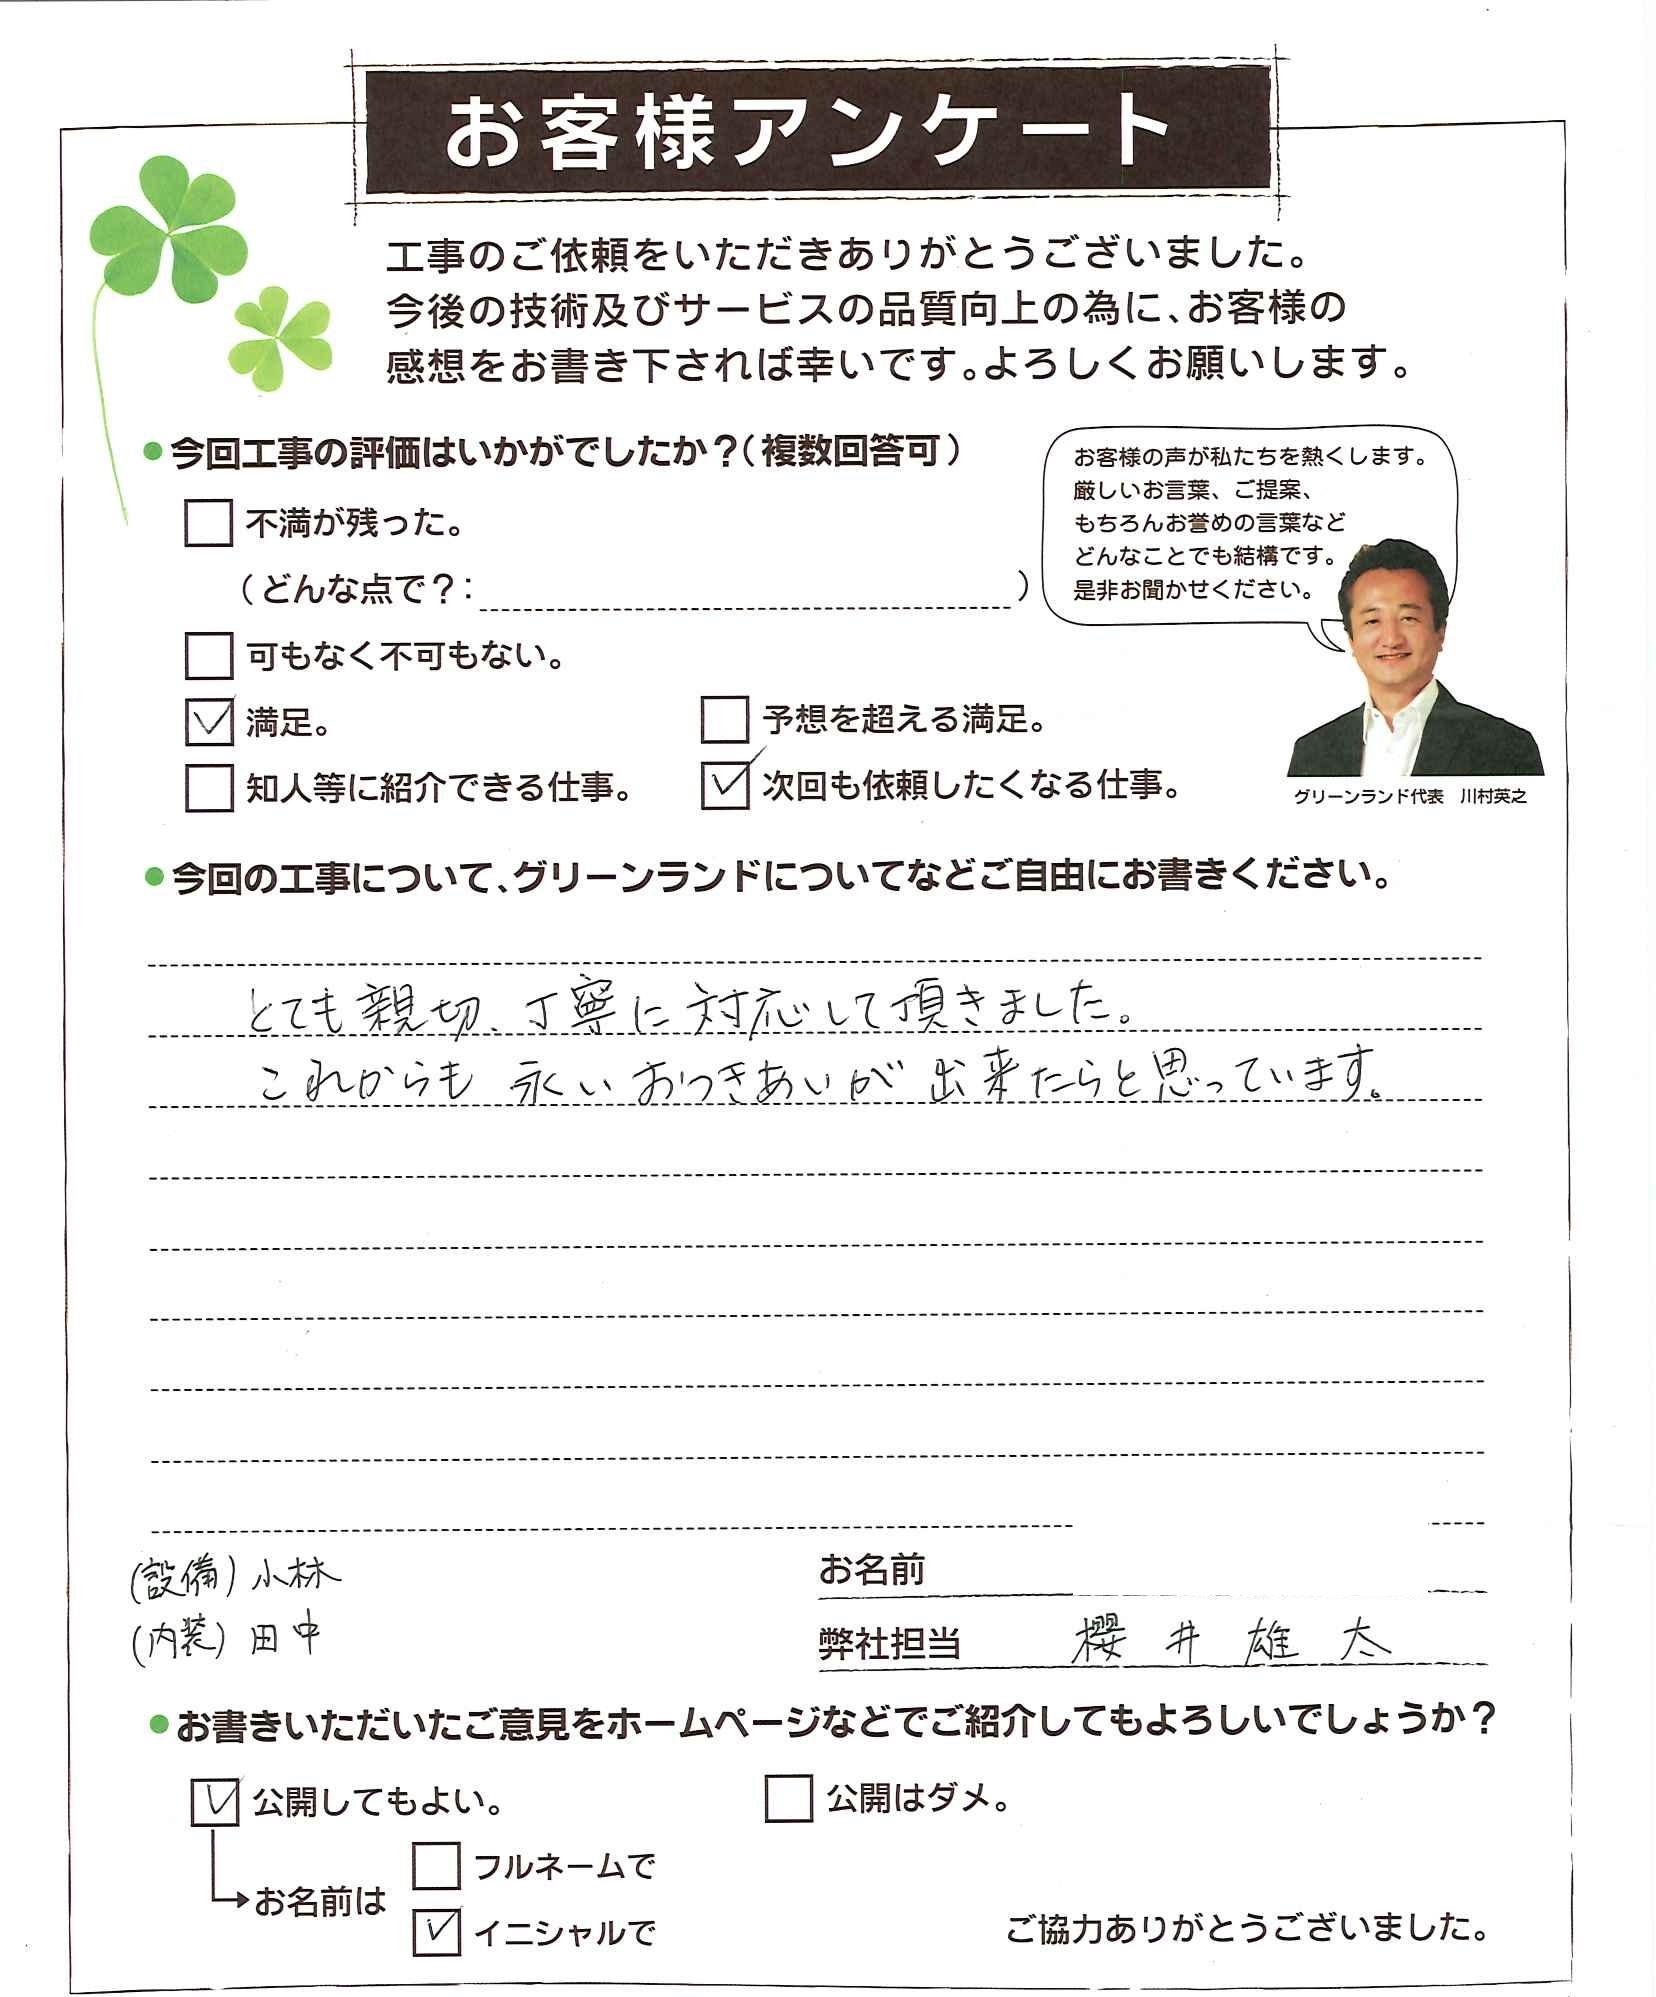 お客様アンケート
工事のご依頼をいただきありがとうございました。
今後の技術及びサービスの品質向上の為に、お客様の
感想をお書き下されば幸いです。よろしくお願いします。
●今回工事の評価はいかがでしたか？（複数回答可）
お客様の声が私たちを熱くします。
厳しいお言葉、ご提案、
もちろんお誉めの言葉など
どんなことでも結構です。
是非お聞かせください。
グリーンランド代表　川村英之
□ 不満が残った。
（どんな点で？：　）
□ 可もなく不可もない。
☑ 満足。
□ 予想を超える満足。
□ 知人等に紹介できる仕事。
☑ 次回も依頼したくなる仕事。
●今回の工事について、グリーンランドについてなどご自由にお書きください。
とても親切、丁寧に対応して頂きました。
これからも永いおつきあいが出来たらと思っています。
(設備) 小林
(内装) 田中
お名前
弊社担当　櫻井雄太
●お書きいただいたご意見をホームページなどでご紹介してもよろしいでしょうか？
☑ 公開してもよい。
□ 公開はダメ。
お名前は
□ フルネームで
☑ イニシャルで
ご協力ありがとうございました。